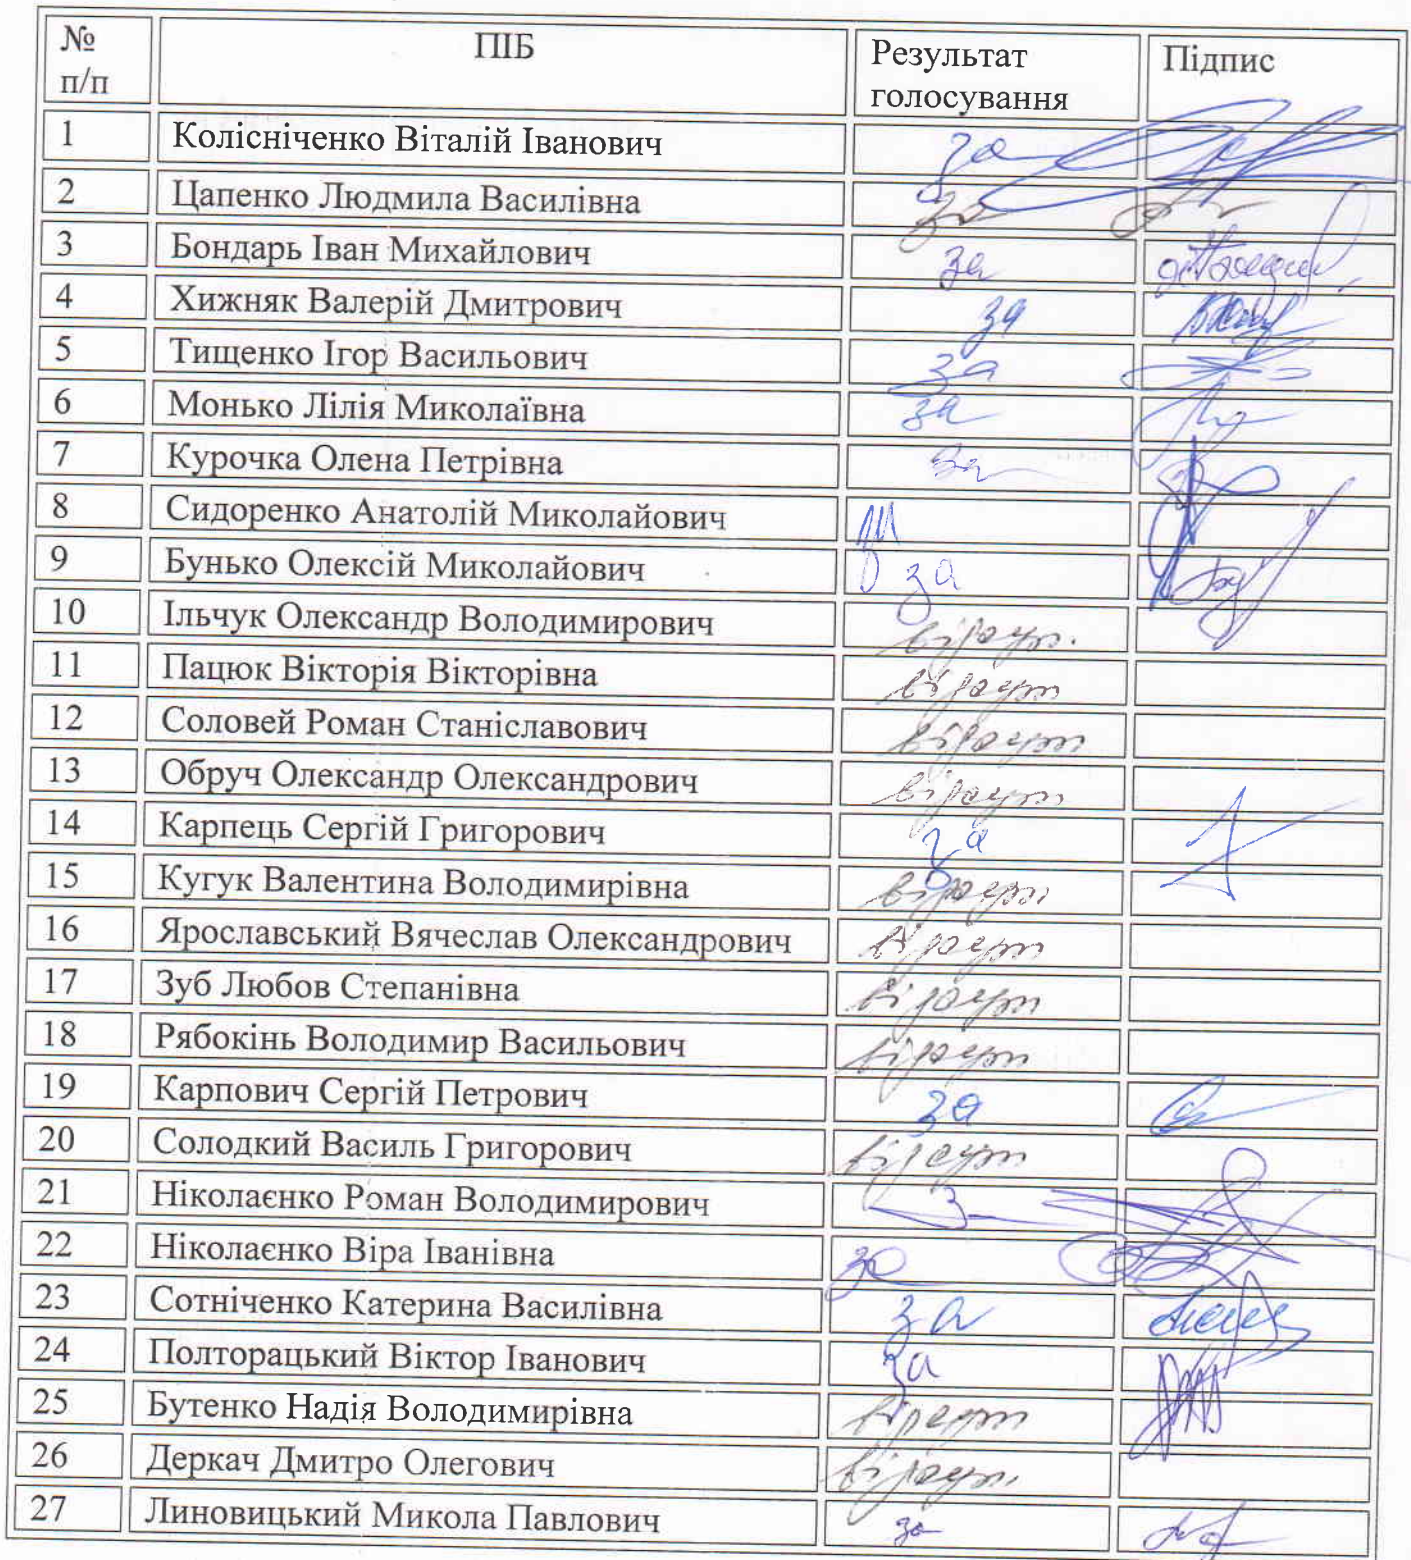 № п/п ПІБ Результат голосування Підпис
1 Колісніченко Віталій Іванович за
2 Цапенко Людмила Василівна за
3 Бондарь Іван Михайлович за
4 Хижняк Валерій Дмитрович за
5 Тищенко Ігор Васильович за
6 Монько Лілія Миколаївна за
7 Курочка Олена Петрівна за
8 Сидоренко Анатолій Миколайович
9 Бунько Олексій Миколайович за
10 Ільчук Олександр Володимирович відсут.
11 Пацюк Вікторія Вікторівна відсут
12 Соловей Роман Станіславович відсут
13 Обруч Олександр Олександрович відсут
14 Карпець Сергій Григорович за
15 Кугук Валентина Володимирівна відсут
16 Ярославський Вячеслав Олександрович відсут
17 Зуб Любов Степанівна відсут
18 Рябокінь Володимир Васильович відсут
19 Карпович Сергій Петрович за
20 Солодкий Василь Григорович відсут
21 Ніколаєнко Роман Володимирович
22 Ніколаєнко Віра Іванівна за
23 Сотніченко Катерина Василівна за
24 Полторацький Віктор Іванович за
25 Бутенко Надія Володимирівна відсут
26 Деркач Дмитро Олегович відсут
27 Линовицький Микола Павлович за